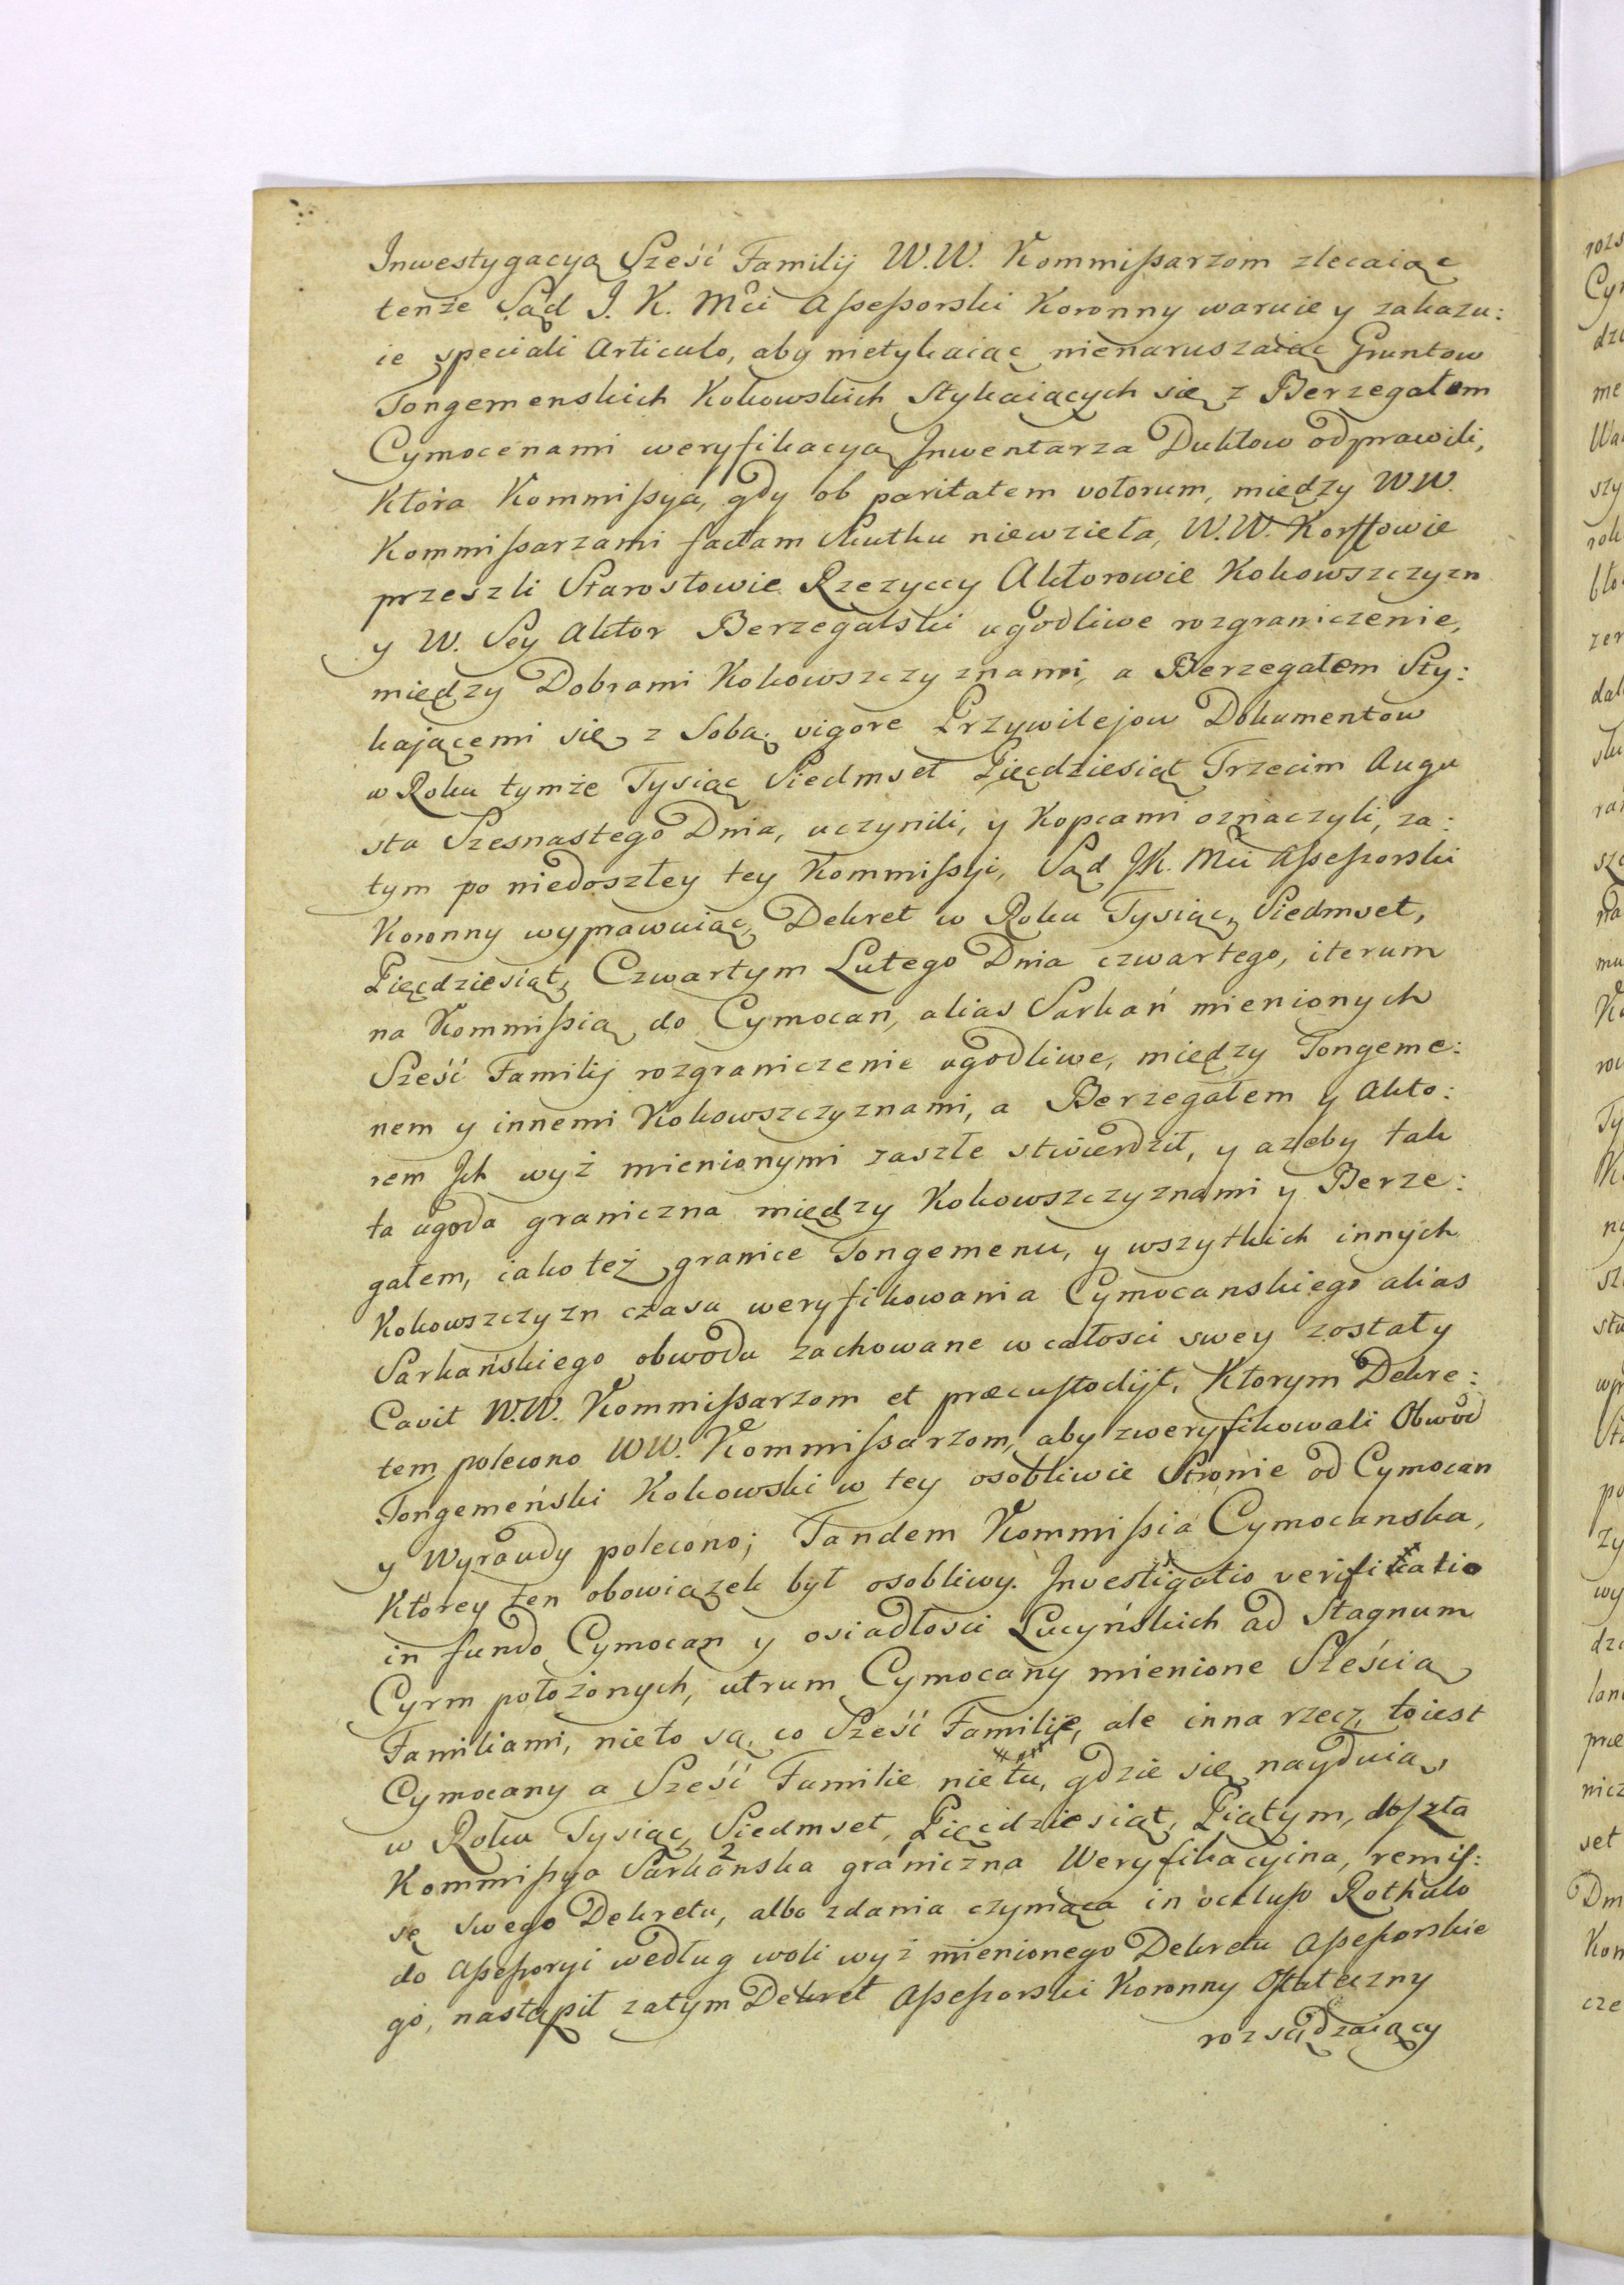 Inwestygacyą Sześć Familij W.W. Kommißarzom zlecaiąc
tenże Sąd J. K. Mci Aßeßorski Koronny waruie y zakazu:
ie speciali Articulo, aby nietykaiąc nienaruszaiąc Gruntow
Tongemenskich Kokowskich Stykaiących się z Berzegałem
Cymocenami weryfikacyą Inwentarza Duktow odprawili,
Ktora Kommißya, gdy ob paritatem votorum, między W.W.
Kommißarzami factam Skutku niewzieła, W.W. Korffowie
przeszli Starostowie Rzezyccy Aktorowie Kokowszczyzn
y W. Sey Aktor Berzegalski ugodliwe rozgraniczenie,
między Dobrami Kokowszczyznami, a Berzegałem Sty:
kającemi się z Sobą, vigore Przywilejow Dokumentow
w Roku tymże Tysiąc Siedmset Pięcdziesiąt Trzecim Augu
sta Szesnastego Dnia, uczynili, y Kopcami oznaczyli, za:
tym po niedoszłey tey Kommißyi, Sąd JK. Mci Aßeßorski
Koronny wyprawuiąc, Dekret w Roku Tysiąc, Siedmset,
Pięcdziesiąt, Czwartym Lutego Dnia czwartego, iterum
na Kommißią do Cymocan, alias Sarkań mienionych
Sześć Familij rozgraniczenie ugodliwe, między Tongeme:
nem y innemi Kokowszczyznami, a Berzegałem y Akto:
rem Ich wyż mienionymi zaszłe stwierdził, y azeby tak
ta ugoda graniczna między Kokowszczyznami y Berze:
gałem, iako też granice Tongemenu, y wszytkich innych
Kokowszczyzn czasu weryfikowania Cymocanskiego alias
Sarkańskiego obwodu zachowane w całosci swey zostały
Cavit W.W. Kommißarzom et præcustodijt. Ktorym Dekre:
tem polecono WW. Kommißarzom, aby zweryfikowali Obwod
Tongemeński Kokowski w tey osobliwie Stronie od Cymocan
y Wyraudy polecono; Tandem Kommißia Cymocanska,
Ktorey ten obowiązek był osobliwy. Investigatio verificatio
in fundo Cymocan y osiadłosci Lucyńskich ad Stagnum
Cyrm położonych, utrum Cymocany mienione Sześcią
Familiami, nieto są, co Sześć Familie, ale inna rzecz, toiest
Cymocany a Sześć Familie nie tu, gdzie się nayduią,
w Roku Tysiąc, Siedmset, Pięcdziesiąt, Piątym, doszła
Kommißya Sarkanska graniczna Weryfikacyina, remiß:
sę Swego Dekretu, albo zdania czyniąca in occluso Rothulo
do Aßeßoryi według woli wyż mienionego Dekretu Aßeßorskie
go, nastąpił zatym Dekret Aßeßorski Koronny Ostateczny
rozsądzaiący